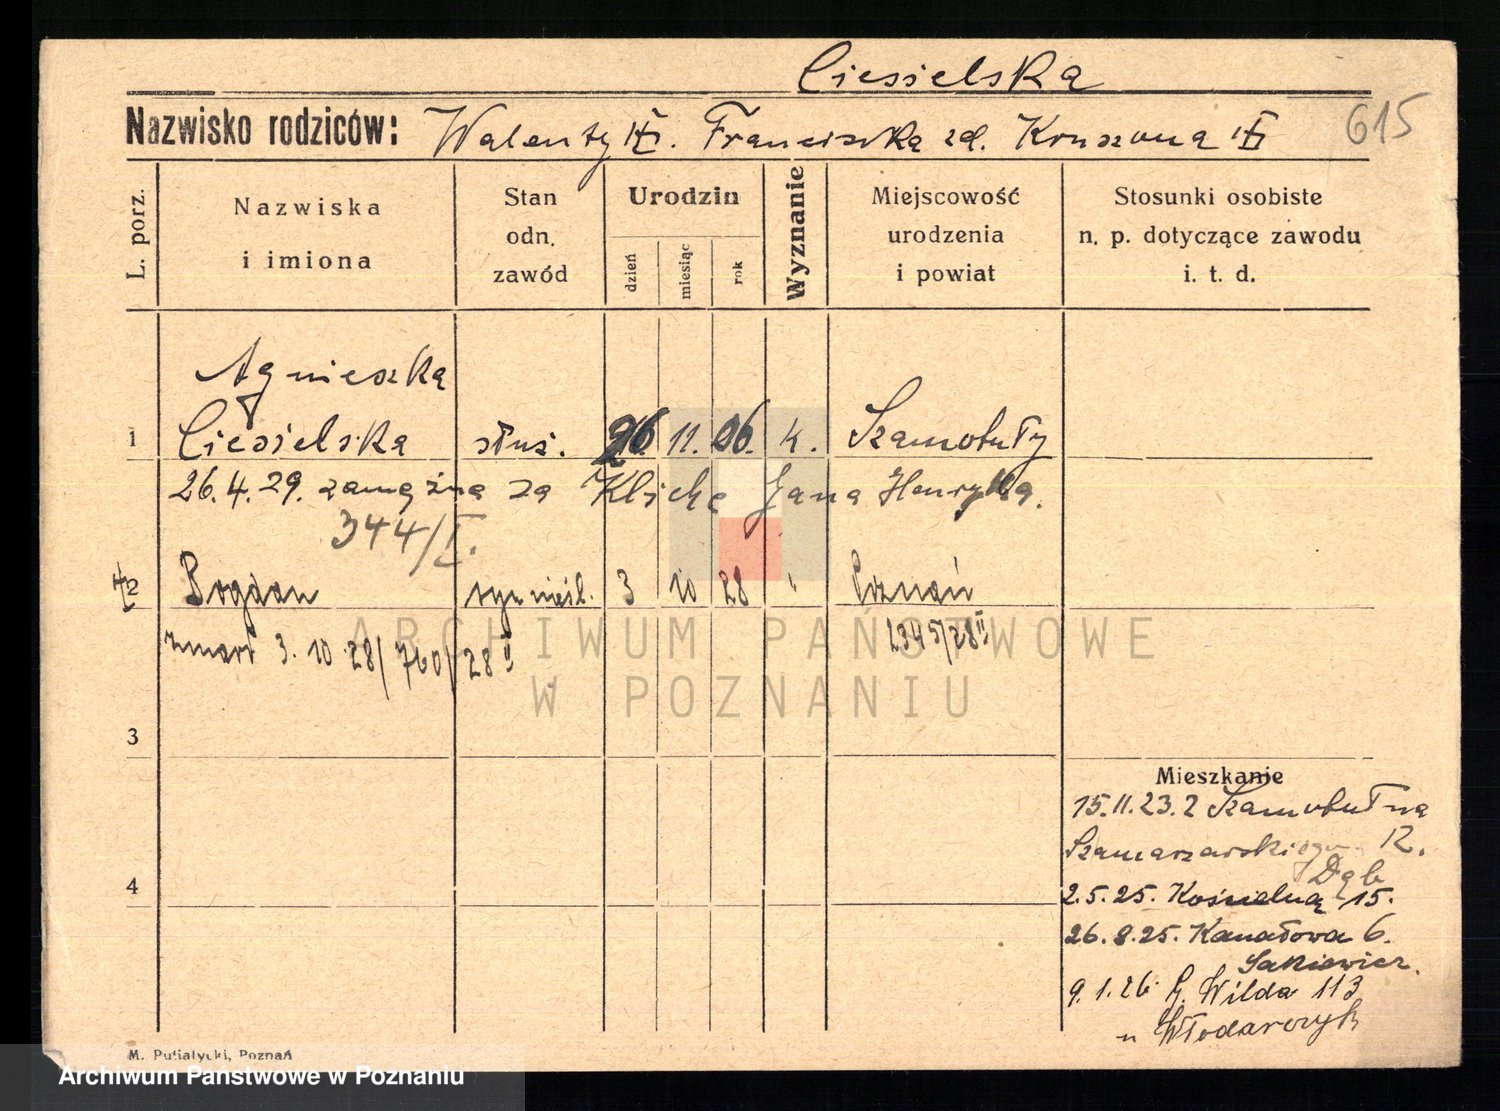 Ciesielska
615
Nazwisko rodziców: Walenty Franciszka zd. Kruszona
L. porz.
Nazwiska
i imiona
Stan
odn.
zawód
Urodzin
dzień
miesiąc
rok
Wyznanie
Miejscowość
urodzenia
i powiat
Stosunki osobiste
n. p. dotyczące zawodu
i. t. d.
Agnieszka
1 Ciesielska służ. 26. 11. 06. k. Szamotuły
26.4.29. zamężna za Klicke Jana Henryka.
344/I.
2 Bogdan syn nieśl. 3 10 28 Poznań
zmarł 3. 10 28/760/28 II 2345/28 II
ARCHIWUM PAŃSTWOWE
W POZNANIU
3
4
Mieszkanie
15.11.23. z Szamotuł na
Szamarzewskiego 12.
Dąb
2.5.25. Kościelną 15.
26.8.25. Kanałowa 6.
9.1.26 G. Wilda 113
u Włodarczyk
M. Putiatycki, Poznań
Archiwum Państwowe w Poznaniu